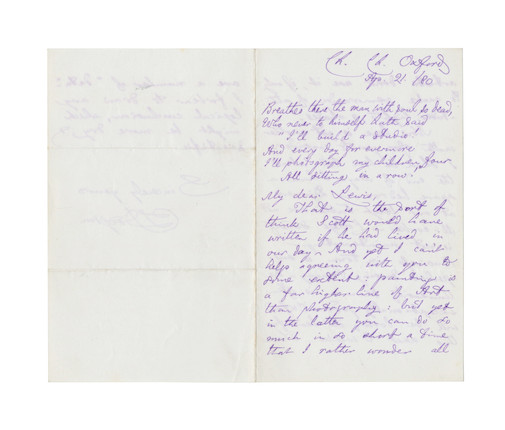 Ch. Ch. Oxford
Ap. 21 /80
Breathes there the man with soul so dead,
Who never to himself hath said
I'll build a studio!
And every day for evermore
I'll photograph my children four
All sitting in a row!
My dear Lewis,
That is the sort of
think Scott would have
written if he had lived in
our day. And yet I can't
help agreeing with you to
some extent: painting is
a far higher line of Art
than photography: but yet
in the latter you can do so
much in so short a time
that I rather wonder all